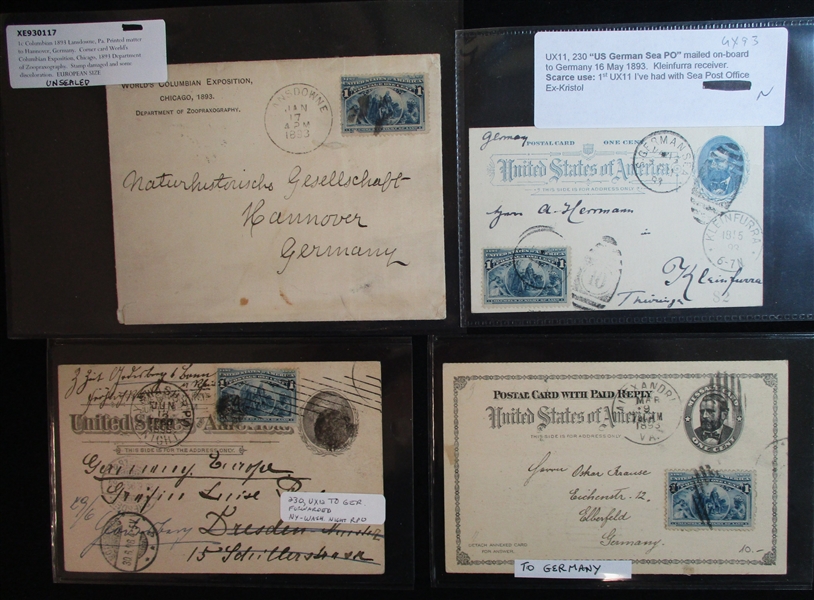 XE930117
1c Columbian 1893 Lansdowne, Pa. Printed matter
to Hannover, Germany. Corner card World's
Columbian Exposition, Chicago, 1893 Department
of Zoopraxography. Stamp damaged and some
discoloration. EUROPEAN SIZE
UNSEALED
WORLD'S COLUMBIAN EXPOSITION,
CHICAGO, 1893.
DEPARTMENT OF ZOOPRAXOGRAPHY.
LANSDOWNE
JAN
17
4 PM
1893
Naturhistorische Gesellschaft
Hannover
Germany
GX93
UX11, 230 "US German Sea PO" mailed on-board
to Germany 16 May 1893. Kleinfurra receiver.
Scarce use: 1st UX11 I've had with Sea Post Office
Ex-Kristol
N
Germany
POSTAL CARD ONE CENT
United States of America
THIS SIDE IS FOR ADDRESS ONLY
GERMAN SEA
Herrn A. Herrmann
in
Kleinfurra
Thüringen
KLEINFURRA
6-7N
82
z Zeit Godesberg b Bonn
a Rh
United States America
THIS SIDE IS FOR THE ADDRESS ONLY.
NIGHT
Germany, Europe
Gräfin Luise
Dresden
15 Schillerstrasse
29/6
230, UX12 TO GER
FORWARDED
NY-WASH NIGHT RPO
POSTAL CARD WITH PAID REPLY
United States of America
THIS SIDE IS FOR ADDRESS ONLY.
ALEXANDRIA
MAR
1893
VA.
ONE CENT
Herrn Oskar Krause
Eichenstr. 12
Elberfeld
Germany.
DETACH ANNEXED CARD
FOR ANSWER.
10.-
TO GERMANY